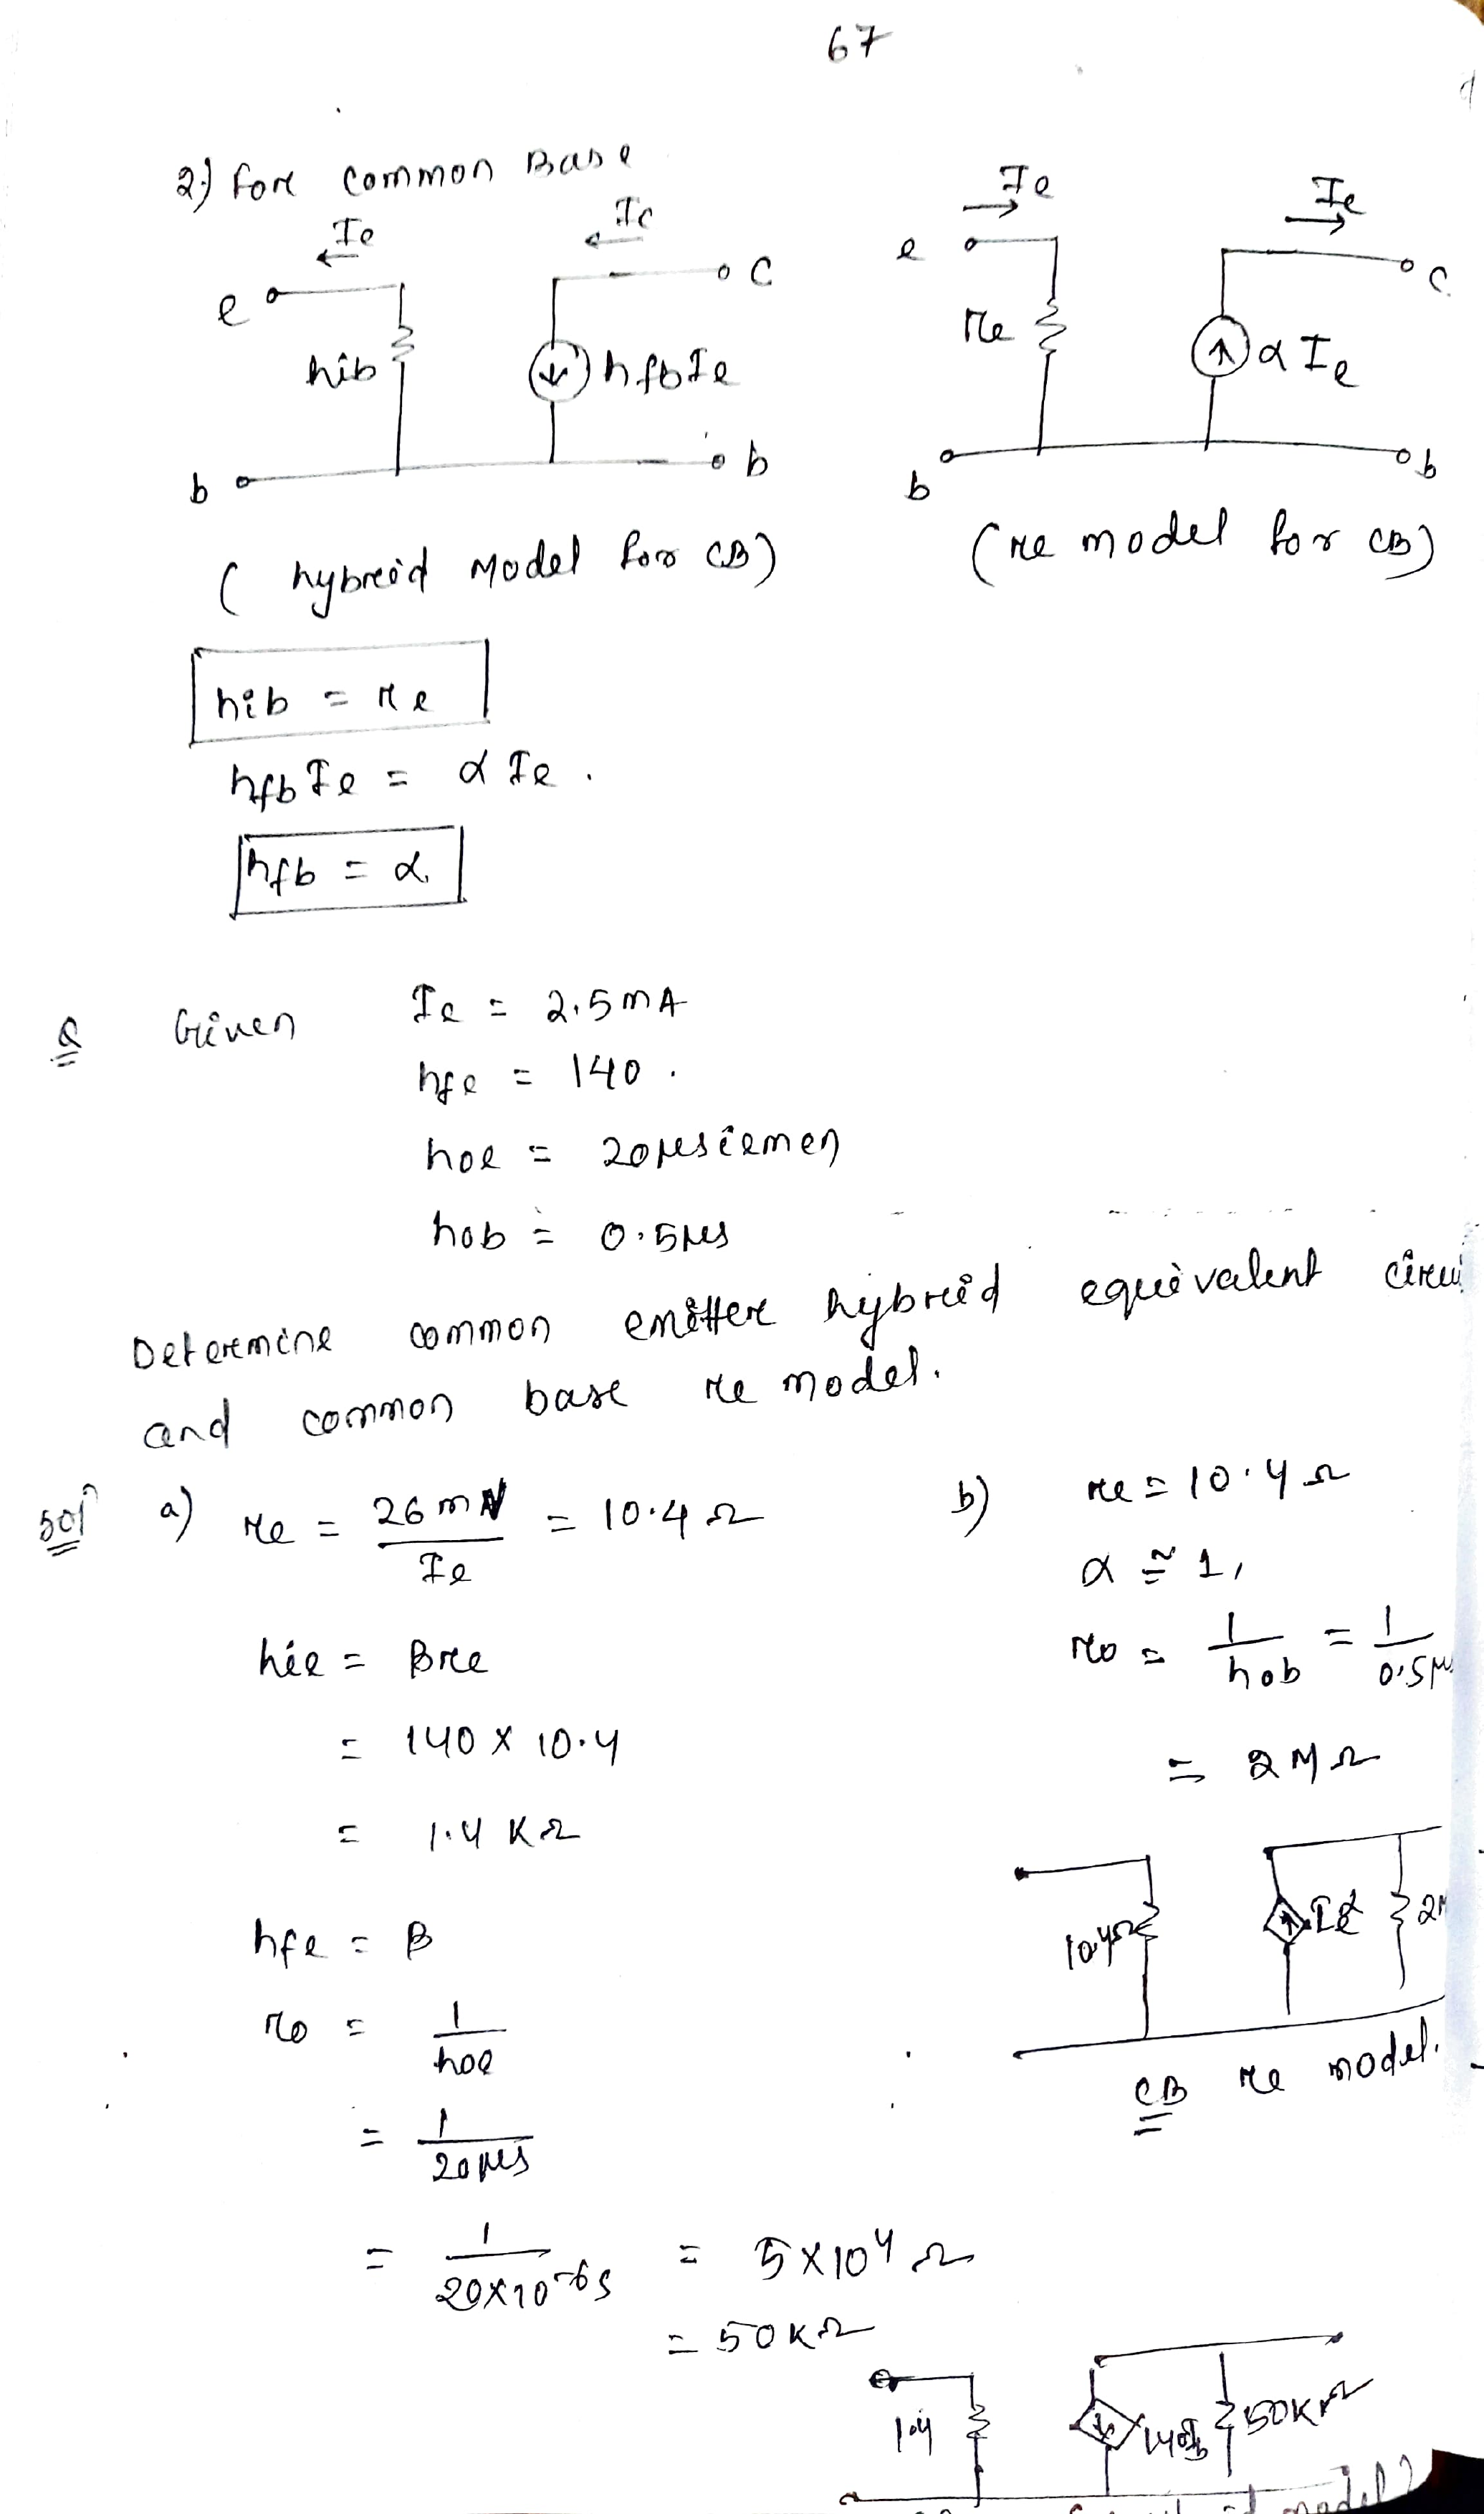 67
2) For Common Base
Ie
Ic
e
C
hib
hfbIe
b
b
(hybrid Model for CB)
Ie
Ie
e
C
re
αIe
b
b
(re model for CB)
hib = re
hfb Ie = α Ie .
hfb = α
Q Given Ie = 2.5mA
hfe = 140 .
hoe = 20μsiemen
hob = 0.5μs
Determine common emitter hybrid equivalent
and common base re model.
Solⁿ a) re = 26mV / Ie = 10.4 Ω
hie = Bre
= 140 x 10.4
= 1.4 KΩ
hfe = B
ro = 1 / hoe
= 1 / 20μs
= 1 / 20x10⁻⁶s = 5x10⁴ Ω
= 50KΩ
b) re = 10.4 Ω
α ≅ 1,
ro = 1 / hob = 1 / 0.5μ
= 2MΩ
10.4Ω
2M
CB re model.
1.4
50KΩ